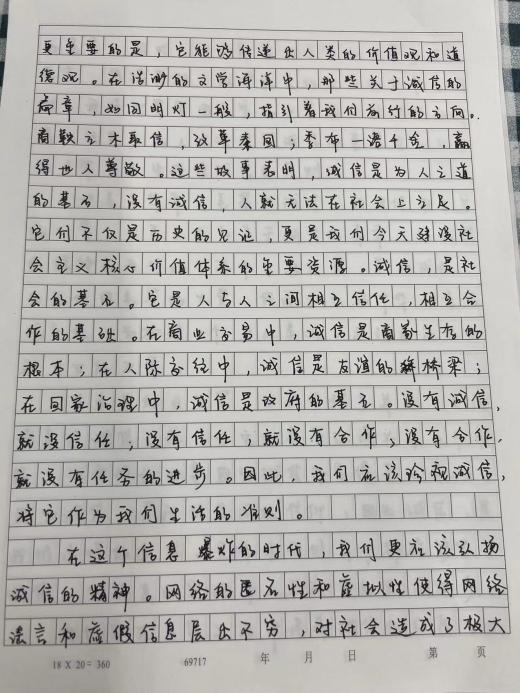 更重要的是，它能够传递出人类的价值观和道
德观。在浩渺的文学海洋中，那些关于诚信的
篇章，如同明灯一般，指引着我们前行的方向。
商鞅立木取信，改革秦国；季布一诺千金，赢
得世人尊敬。这些故事表明，诚信是为人之道
的基石，没有诚信，人就无法在社会上立足。
它们不仅是历史的见证，更是我们今天建设社
会主义核心价值体系的重要资源。诚信，是社
会的基石。它是人与人之间相互信任，相互合
作的基础。在商业交易中，诚信是商家生存的
根本；在人际交往中，诚信是友谊的桥梁；
在国家治理中，诚信是政府的基石。没有诚信，
就没信任；没有信任，就没有合作；没有合作，
就没有任务的进步。因此，我们应该珍视诚信，
将它作为我们生活的准则。
在这个信息爆炸的时代，我们更应该弘扬
诚信的精神。网络的匿名性和虚拟性使得网络
谎言和虚假信息层出不穷，对社会造成了极大
18 X 20 = 360 69717 年 月 日 第 页